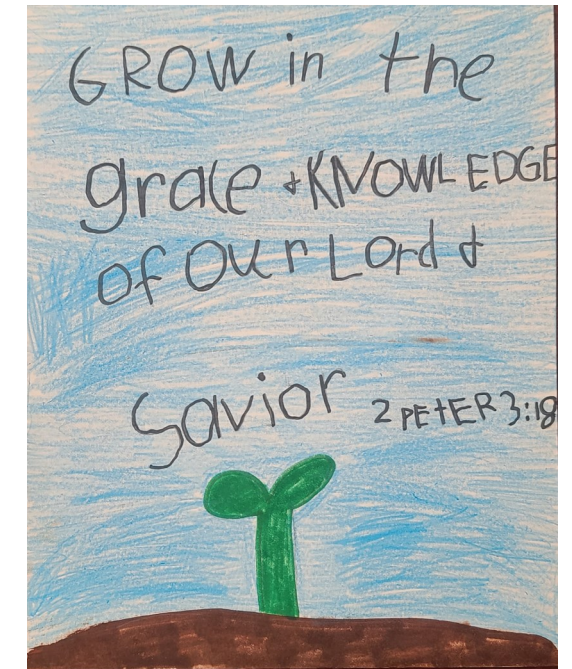 GROW in the
grace & KNOWLEDGE
of our Lord &
Savior 2 PEtER 3:18